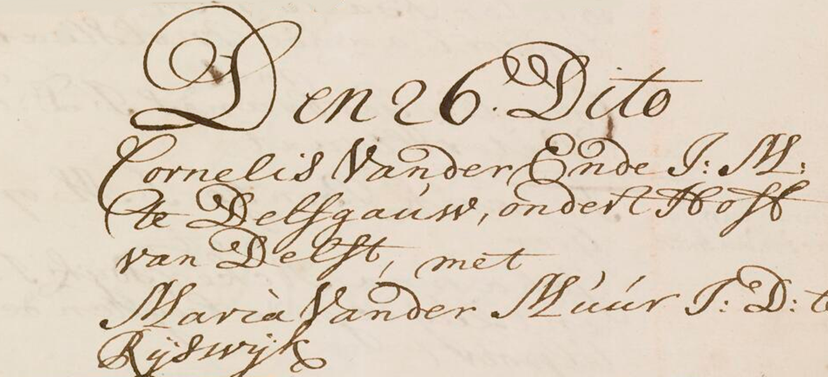 Den 26. Dito
Cornelis Vander Ende J: M:
te Delfgaúw, ondert Hoff
van Delft, met
Maria Vander Múúr J: D: t
Rijswijk